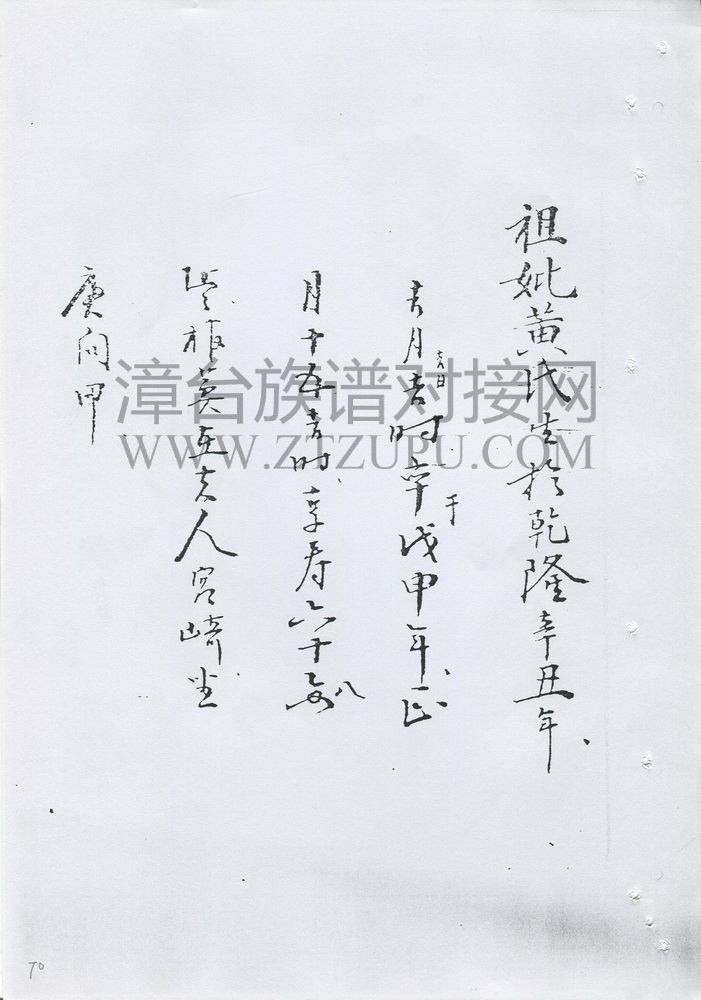 祖妣黄氏生於乾隆辛丑年
吉月吉日吉時卒于戊申年正
月十五吉時享寿六十八歲
墳祔葬在夫人宮崎坐
庚向甲
漳台族谱对接网
WWW.ZTZUPU.COM
70